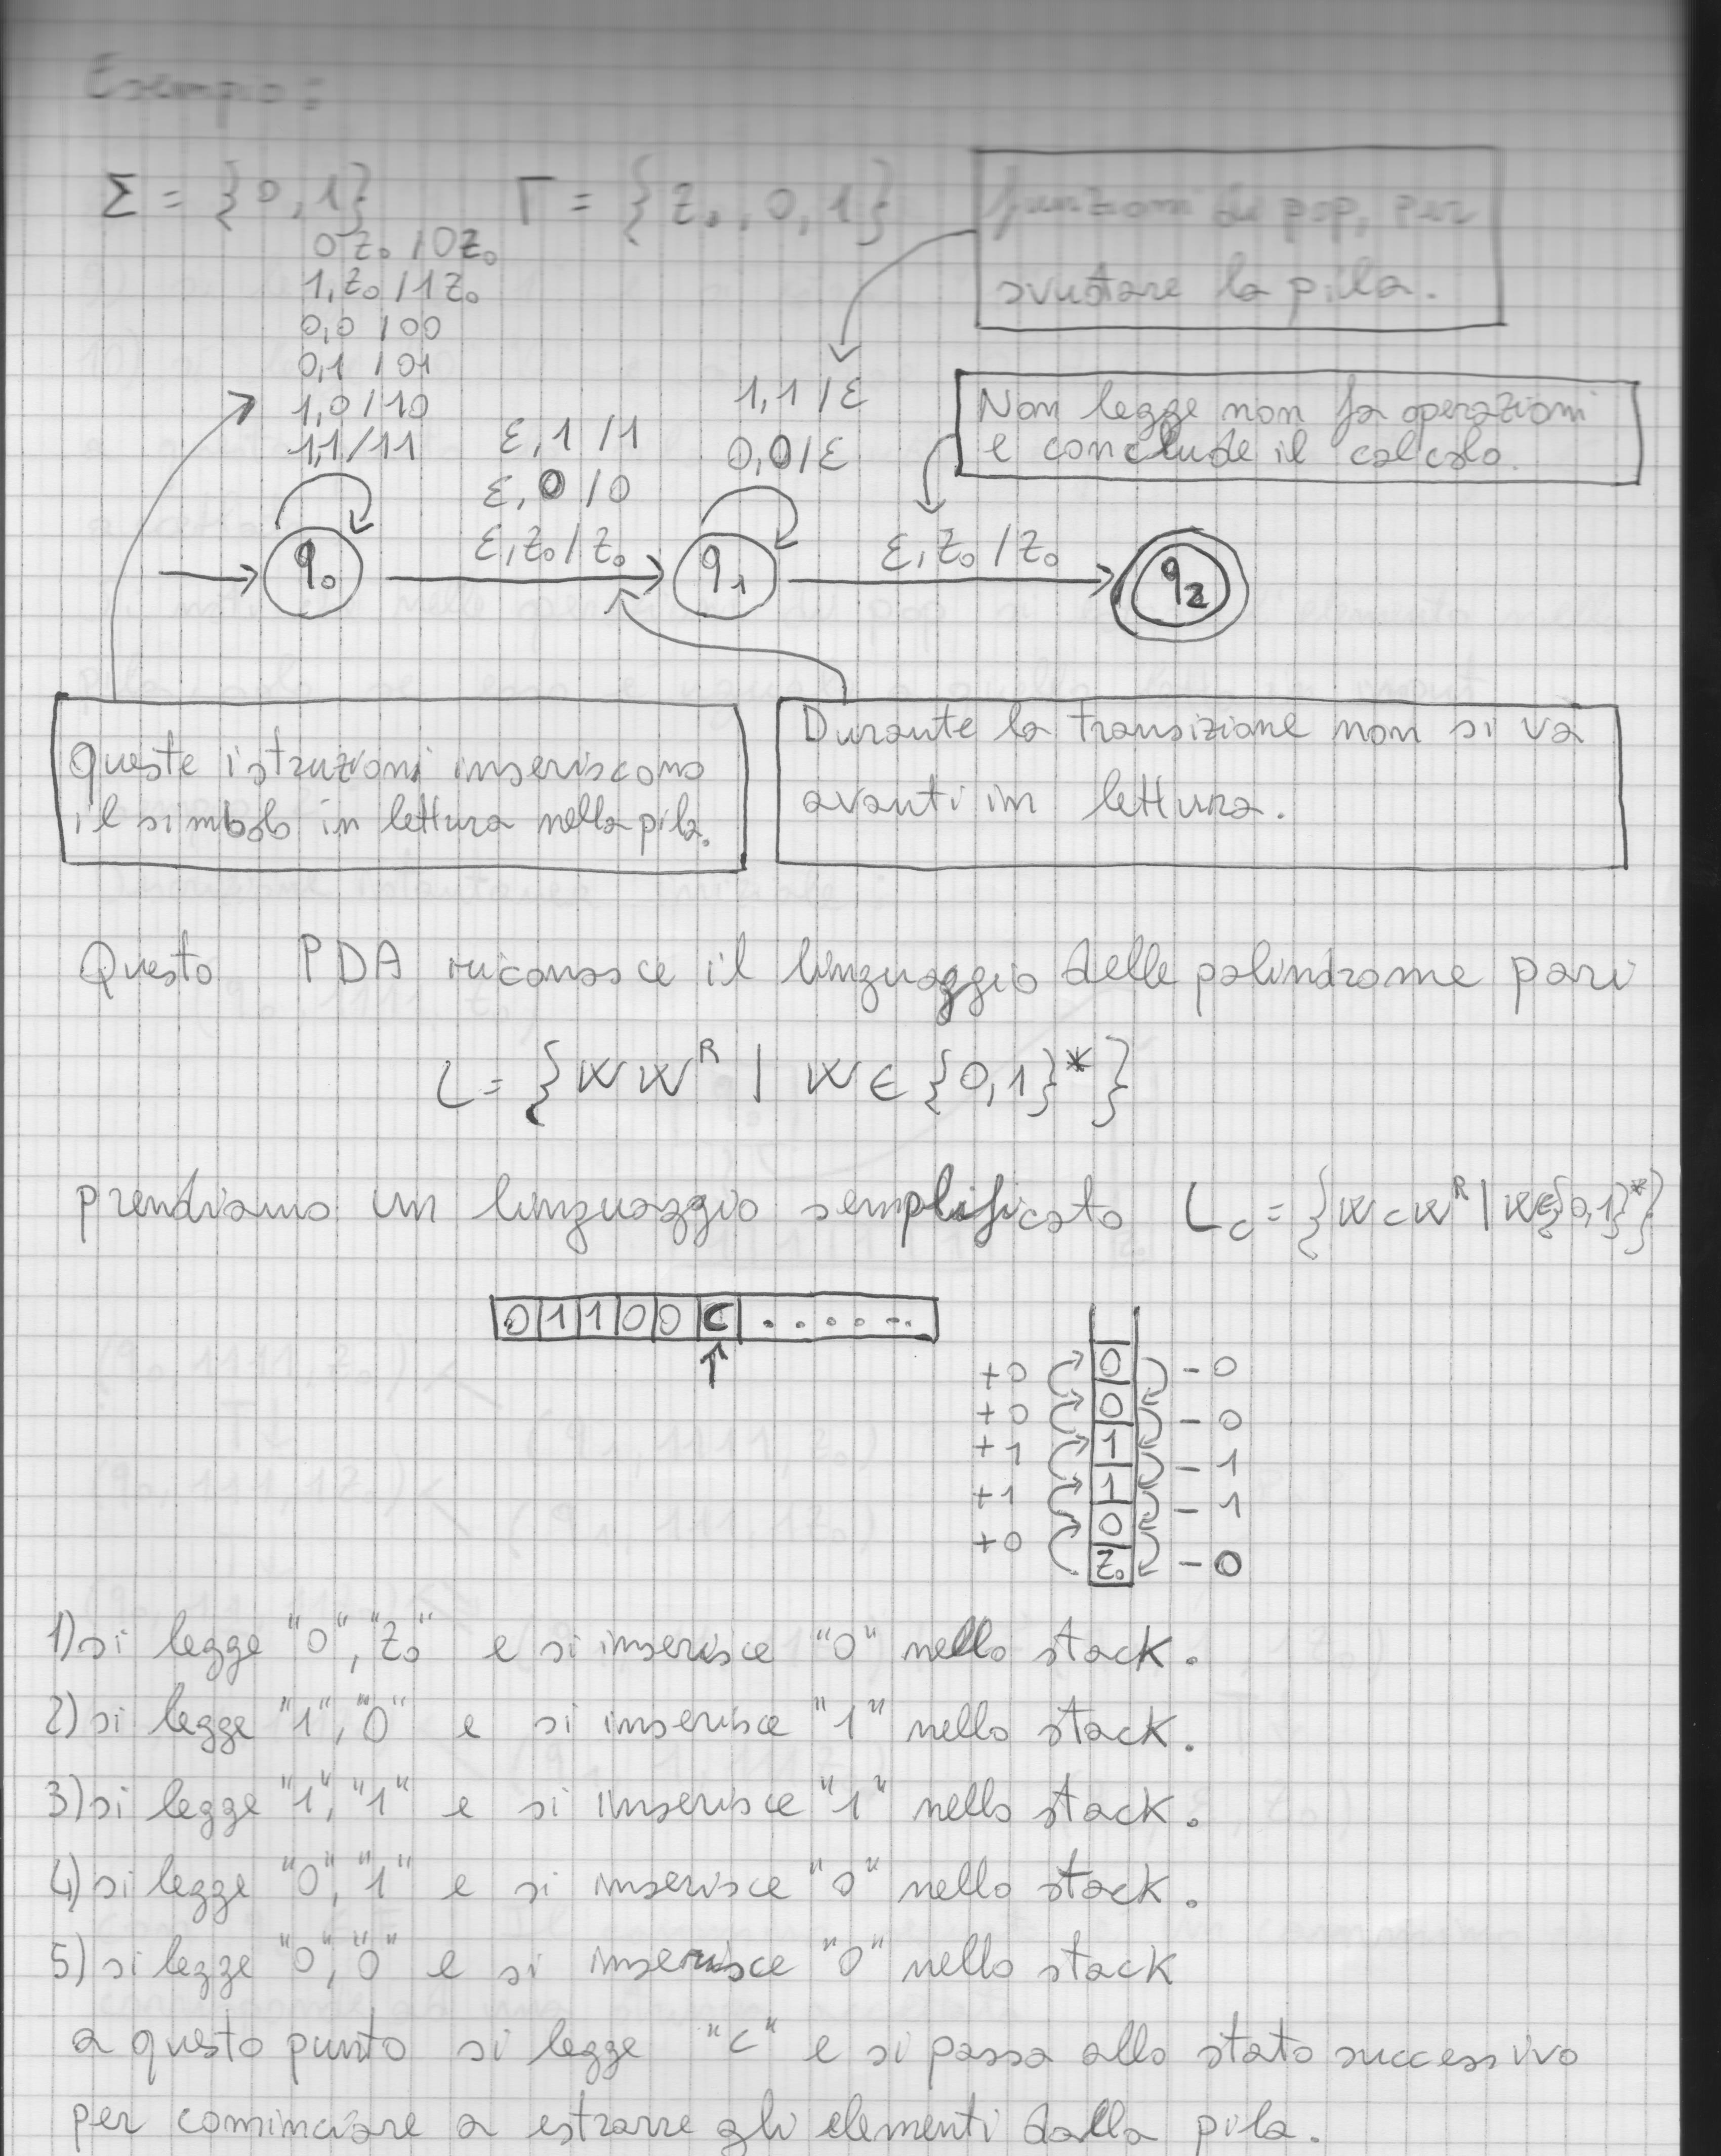 Esempio:
Σ = {0,1} Γ = {z₀,0,1}
funzioni di pop, per
svuotare la pila.
0 z₀ / 0z₀
1,z₀ / 1z₀
0,0 / 00
0,1 / 01
1,0 / 10
1,1 / 11
ε,1 / 1
ε,0 / 0
ε,z₀ / z₀
1,1 / ε
0,0 / ε
Non legge non fa operazioni
e conclude il calcolo.
ε,z₀ / z₀
q₀
q₁
q₂
Queste istruzioni inseriscono
il simbolo in lettura nella pila.
Durante la transizione non si và
avanti in lettura.
Questo PDA riconosce il linguaggio delle palindrome pari
L = {w wᴿ | w ∈ {0,1}*}
prendiamo un linguaggio semplificato L_c = {w c wᴿ | w ∈ {0,1}*}
0 1 1 0 0 c . . . . . .
+0 0 -0
+0 0 -0
+1 1 -1
+1 1 -1
+0 0 -0
z₀
1) si legge "0", "z₀" e si inserisce "0" nello stack.
2) si legge "1", "0" e si inserisce "1" nello stack.
3) si legge "1", "1" e si inserisce "1" nello stack.
4) si legge "0", "1" e si inserisce "0" nello stack.
5) si legge "0", "0" e si inserisce "0" nello stack
a questo punto si legge "c" e si passa allo stato successivo
per cominciare a estrarre gli elementi dalla pila.